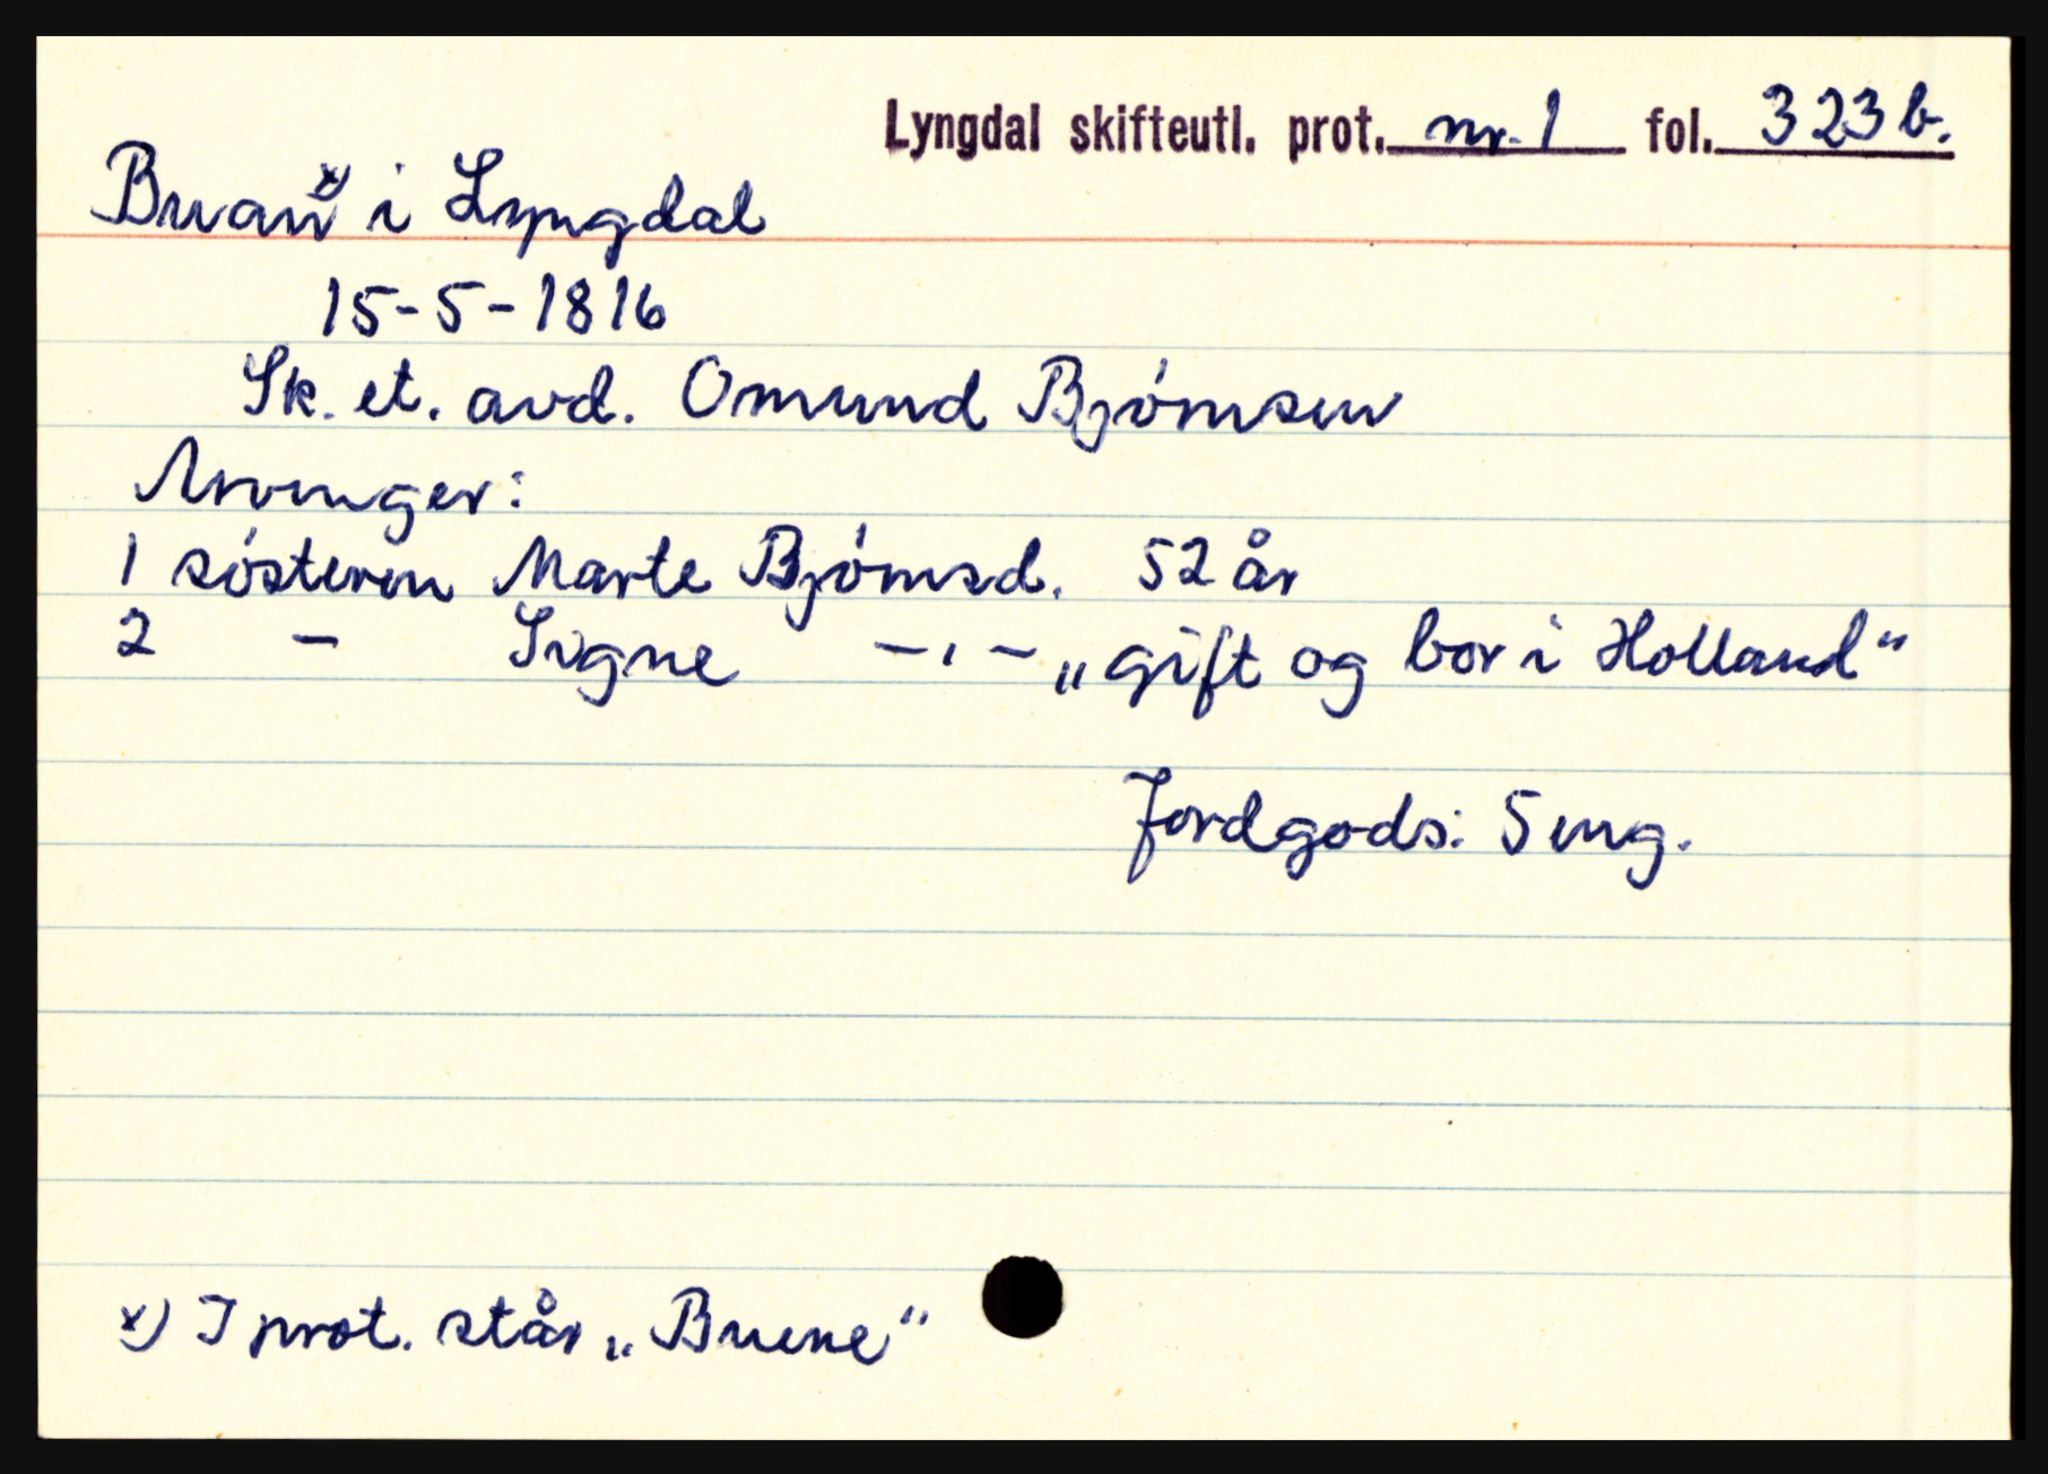 Lyngdal skifteutl. prot. nr. 1 fol. 323 b.
Buan x) i Lyngdal
15-5-1816
Sk. et. avd. Omund Bjørnsen
Arvinger:
1 søsteren Marte Bjørnsd. 52 år
2 — Signe —,— „gift og bor i Holland“
Jordgods: 5 eng.
x) I prot. står „Buene“